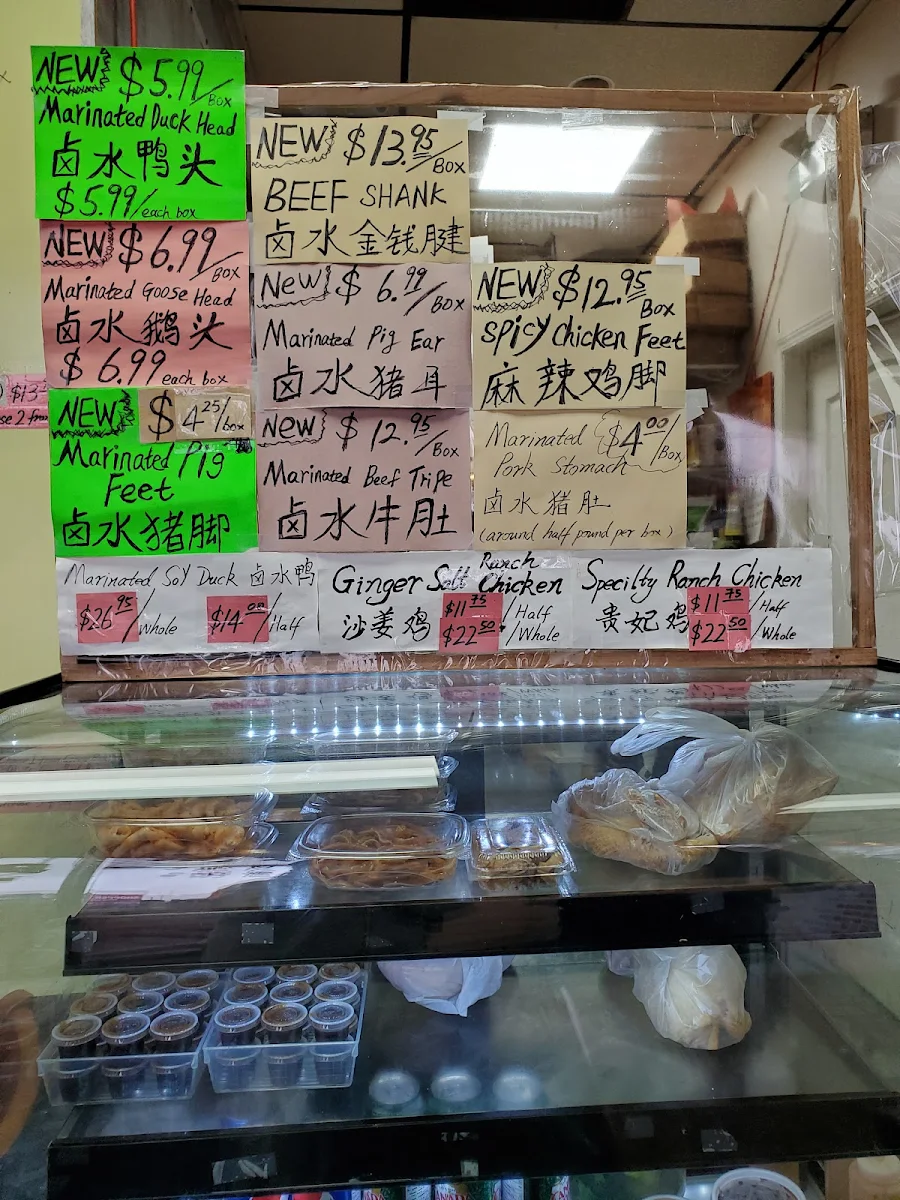 NEW $5.99/Box
Marinated Duck Head
卤水鸭头
$5.99/each box
NEW $6.99/Box
Marinated Goose Head
卤水鹅头
$6.99 each box
NEW $4.25/box
Marinated Pig
Feet
卤水猪脚
NEW $13.95/Box
BEEF SHANK
卤水金钱腱
New $6.99/Box
Marinated Pig Ear
卤水猪耳
New $12.95/Box
Marinated Beef Tripe
卤水牛肚
NEW $12.95 Box
Spicy Chicken Feet
麻辣鸡脚
Marinated $4.00/Box
Pork Stomach
卤水猪肚
(around half pound per box)
Marinated Soy Duck 卤水鸭
$26.95/Whole $14.00/Half
Ginger Salt Ranch Chicken
沙姜鸡 $11.75/Half
$22.50/Whole
Specilty Ranch Chicken
贵妃鸡 $11.75/Half
$22.50/Whole
$13